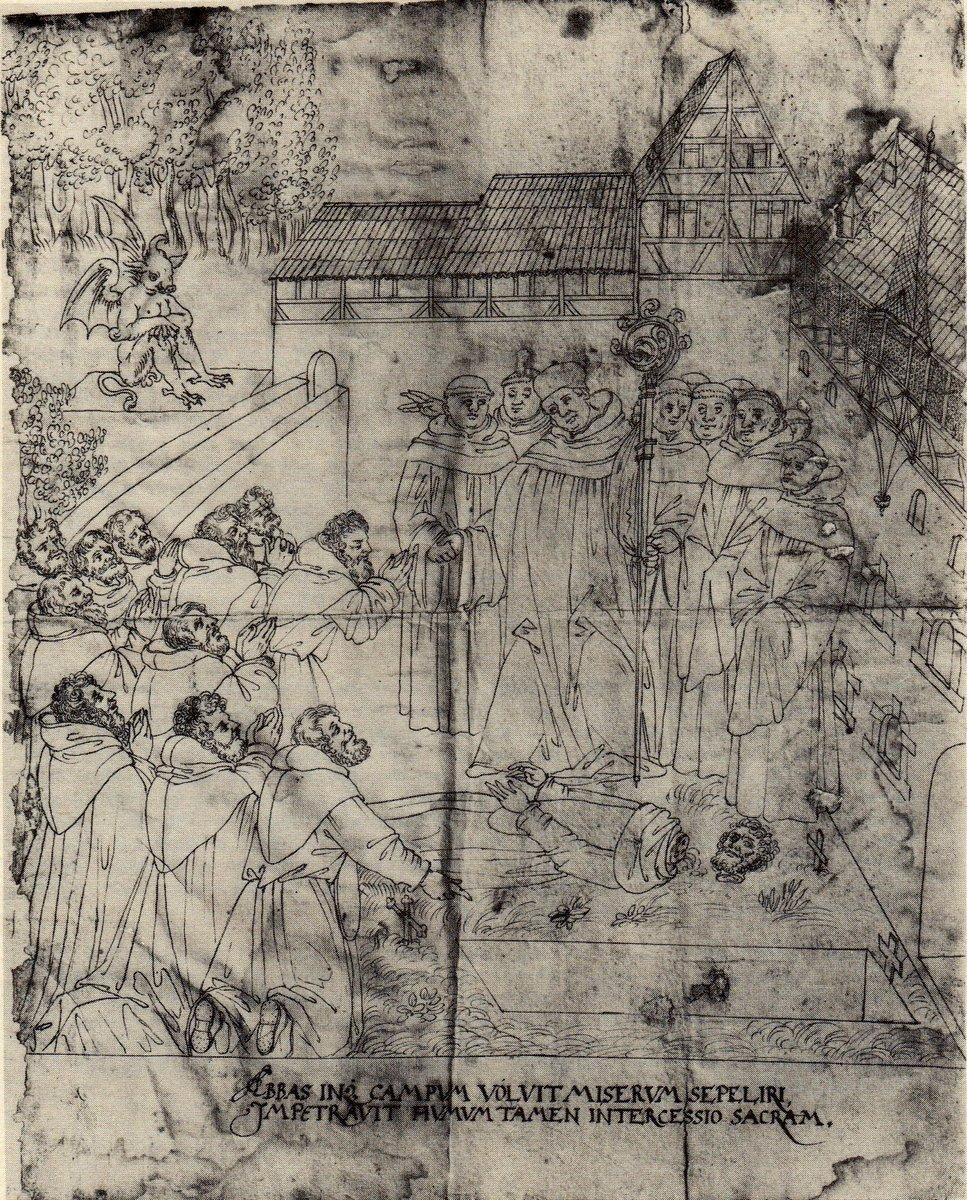 ABBAS INQ CAMPVM VOLVIT MISERVM SEPELIRI,
IMPETRAVIT HVMVM TAMEN INTERCESSIO SACRAM.